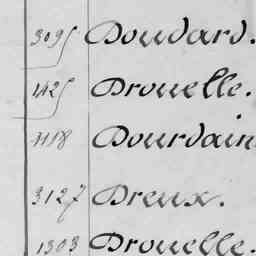 3095 Doudard.
1425 Drouelle.
1118 Dourdain
3127 Dreux.
1303 Drouelle.